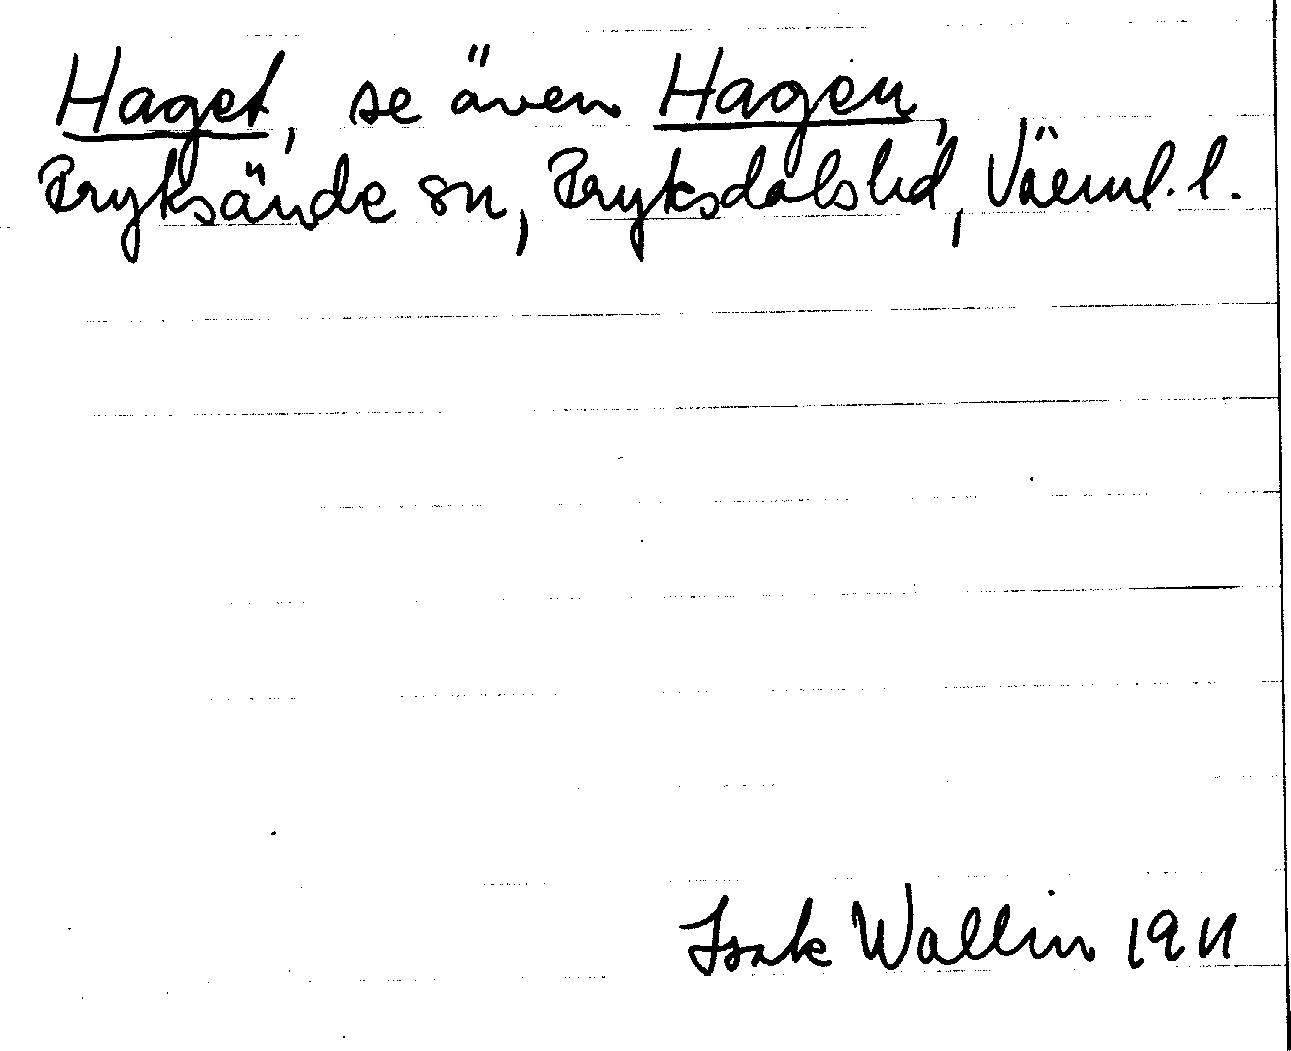 Haget, se även Hagen,
Fryksände sn, Fryksdals hd, Värml. l.
Isak Wallin 1911